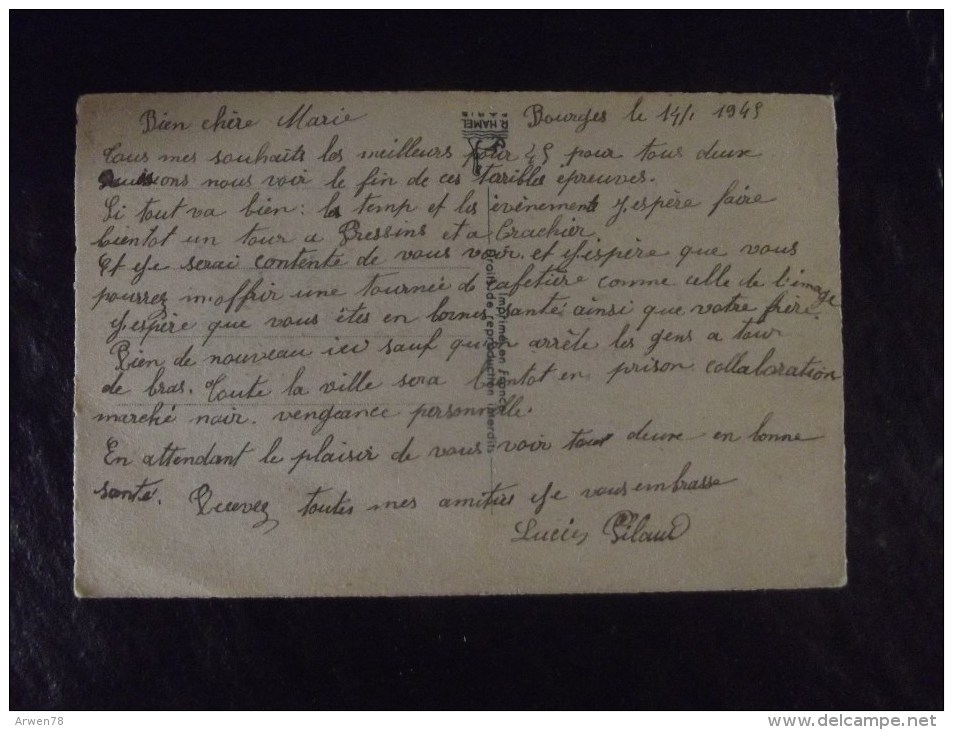 Bien chère Marie
Bourges le 14/1 1945
Tous mes souhaits les meilleurs pour 45 pour tous deux
Puissions nous voir le fin de ces tarribles epreuves.
Si tout va bien : le temp et les évènements j'espère faire
bientot un tour a Pressins et a Crachier
Et je serai contente de vous voir. et j'espère que vous
pourrez m'offrir une tournée de cafetière comme celle de l'image
j'espère que vous êtes en bonnes santé ainsi que votre frère.
Rien de nouveau ici sauf qu'on arrête les gens a tour
de bras. Toute la ville sera bientot en prison collaboration
marché noir. vengeance personnelle.
En attendant le plaisir de vous voir tous deux en bonne
santé. Recevez toutes mes amitiés je vous embrasse
R. HAMEL
PARIS
Imprimé en France
Droits de reproduction interdits
Arwen78
www.delcampe.net